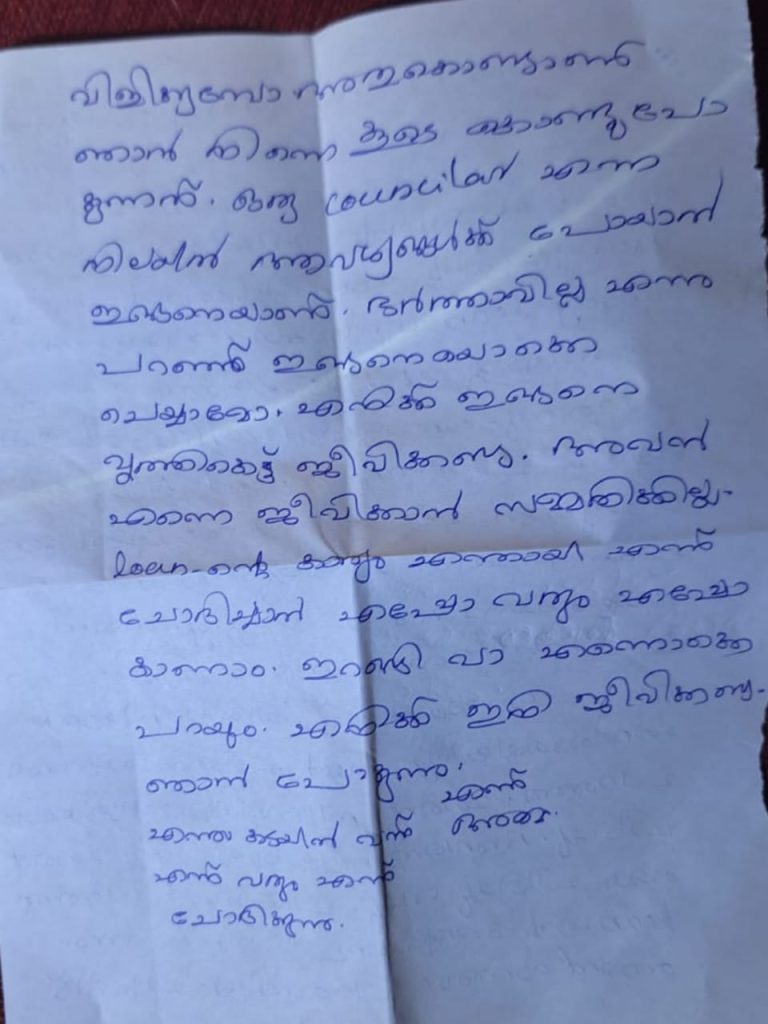 വിളിക്കുമ്പോ അതുകൊണ്ടാണ്
ഞാൻ നിന്നെ കൂടെ കൊണ്ടുപോ
കുന്നത്. ഒരു councilar എന്ന
നിലയിൽ ആവശ്യങ്ങൾക്ക് പോയാൻ
ഇങ്ങനെയാണ്. ഭർത്താവില്ല എന്നു
പറഞ്ഞ് ഇങ്ങനെയൊക്കെ
ചെയ്യാമോ. എനിക്ക് ഇങ്ങനെ
വൃത്തികെട്ട് ജീവിക്കണ്ട. അവൻ
എന്നെ ജീവിക്കാൻ സമ്മതിക്കില്ല.
loan-ന്റെ കാര്യം എന്തായി എന്ന്
ചോദിച്ചാൽ എപ്പോ വരും എപ്പോ
കാണാം. ഇറങ്ങി വാ എന്നൊക്കെ
പറയും. എനിക്ക് ഇനി ജീവിക്കണ്ട.
ഞാൻ പോകുന്നു.
എന്നും കടയിൽ വന്ന് എന്ന് അമ്മ.
എന്ന് വരും എന്ന്
ചോദിക്കുന്നു.